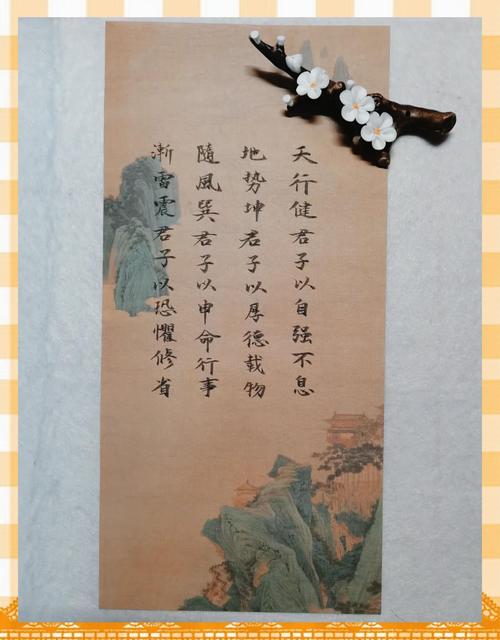 天行健君子以自强不息
地势坤君子以厚德载物
隨風巽君子以申命行事
漸雷震君子以恐懼修省